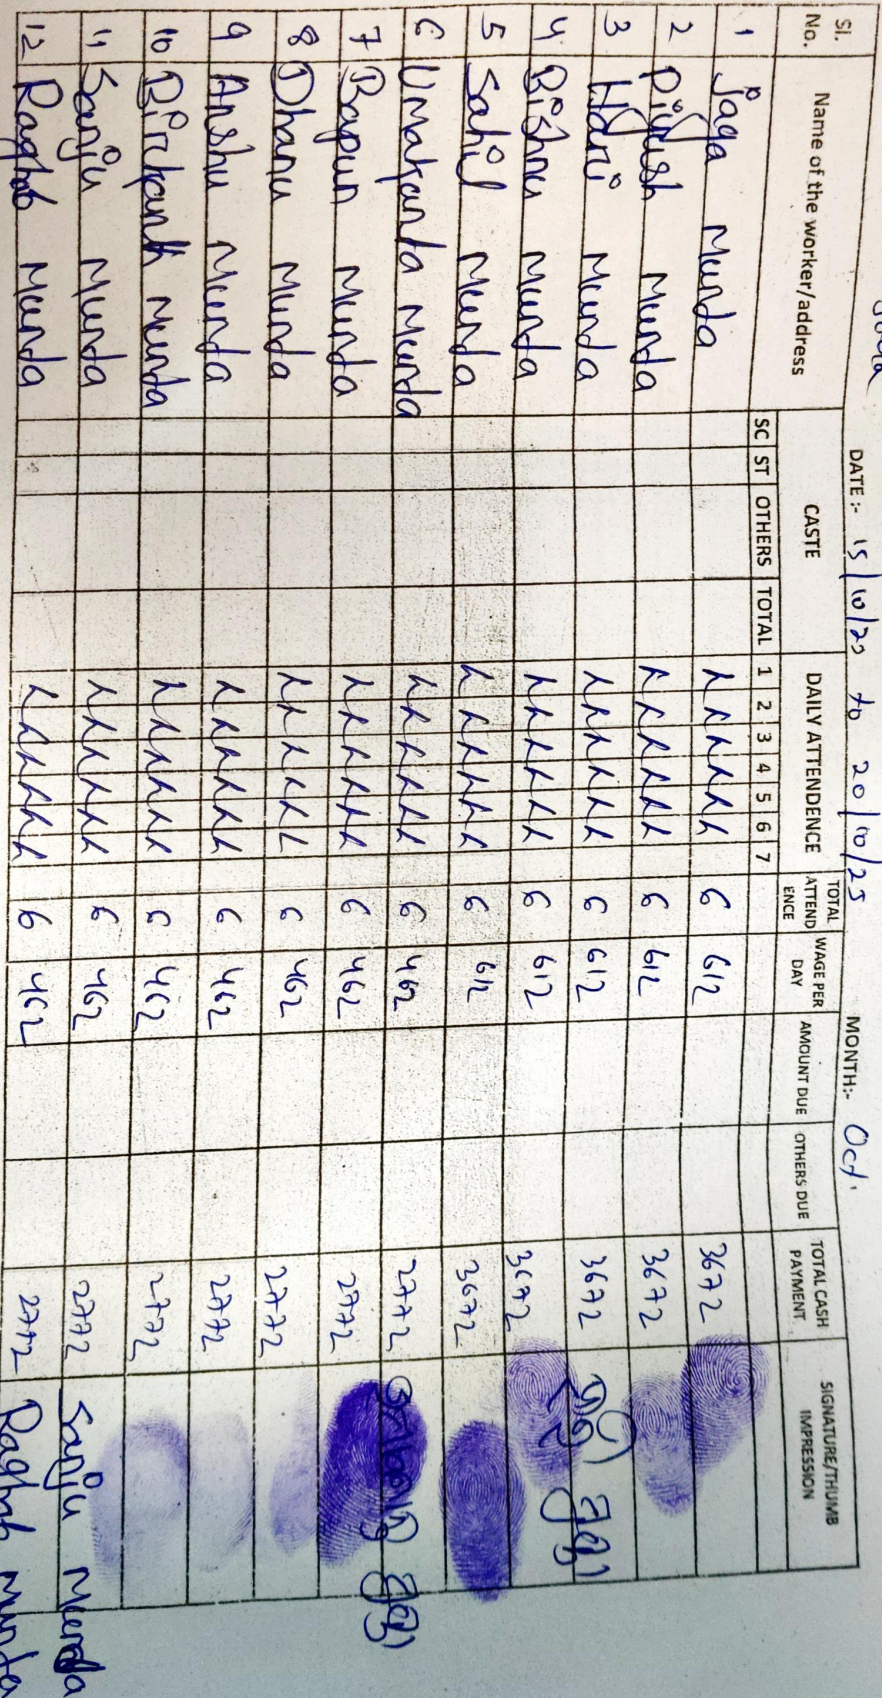 DATE :- 15/10/25 to 20/10/25 MONTH:- Oct.
Sl. No. Name of the worker/address CASTE DAILY ATTENDENCE TOTAL ATTEND ENCE WAGE PER DAY AMOUNT DUE OTHERS DUE TOTAL CASH PAYMENT SIGNATURE/THUMB IMPRESSION
SC ST OTHERS TOTAL 1 2 3 4 5 6 7
1 Jaga Munda 6 612 3672
2 Piyush Munda 6 612 3672
3 Hari Munda 6 612 3672
4 Bishnu Munda 6 612 3672
5 Sahil Munda 6 612 3672
6 Umakanta Munda 6 462 2772
7 Bapun Munda 6 462 2772
8 Dhanu Munda 6 462 2772
9 Anshu Munda 6 462 2772
10 Birkanth Munda 6 462 2772
11 Sanju Munda 6 462 2772 Sanju Munda
12 Raghab Munda 6 462 2772 Raghab Munda